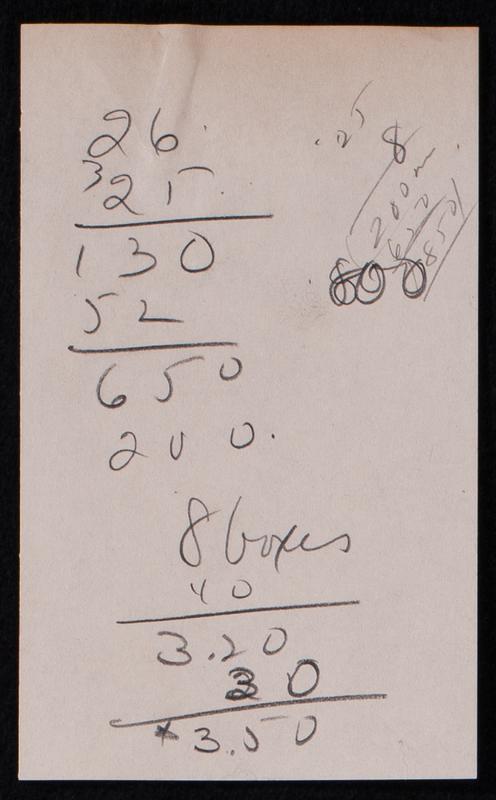 26
25
130
52
650
200.
8 boxes
40
3.20
30
3.50
.25
8
200
650
850
800